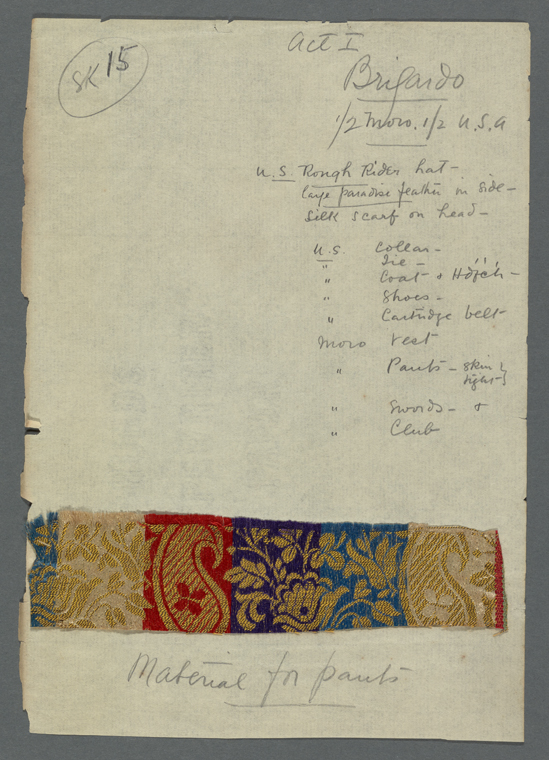 Act I
SK 15
Brigardo
1/2 Moro. 1/2 U.S.A
U.S. Rough Rider hat —
large paradise feather in side —
Silk scarf on head —
U.S. Collar —
" Tie —
" Coat & Hdjch —
" Shoes —
" Cartridge belt
Moro Vest
" Pants — skin }
tight }
" Swords — &
" Club
Material for pants